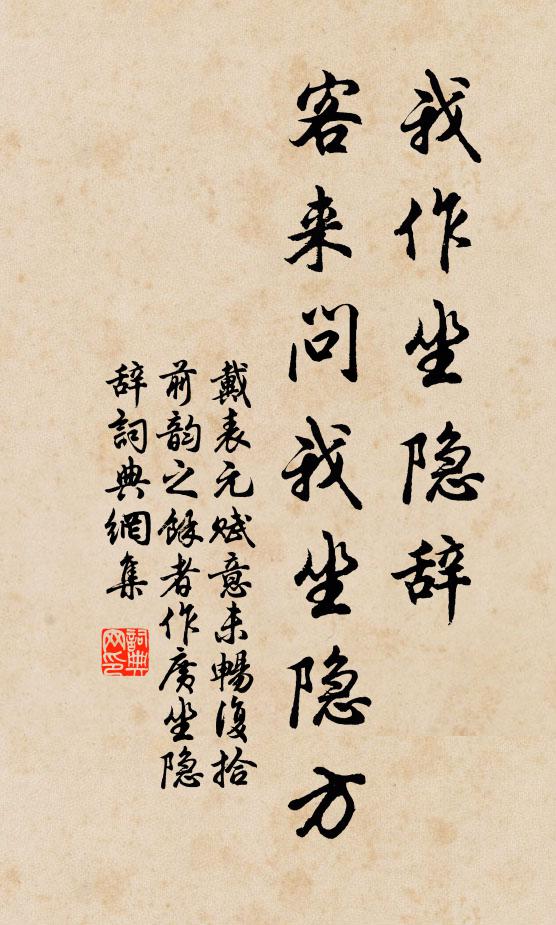 我作坐隐辞
客来问我坐隐方
戴表元赋意未畅復拾
前韵之馀者作广坐隐
辞词典网集
詞典網印